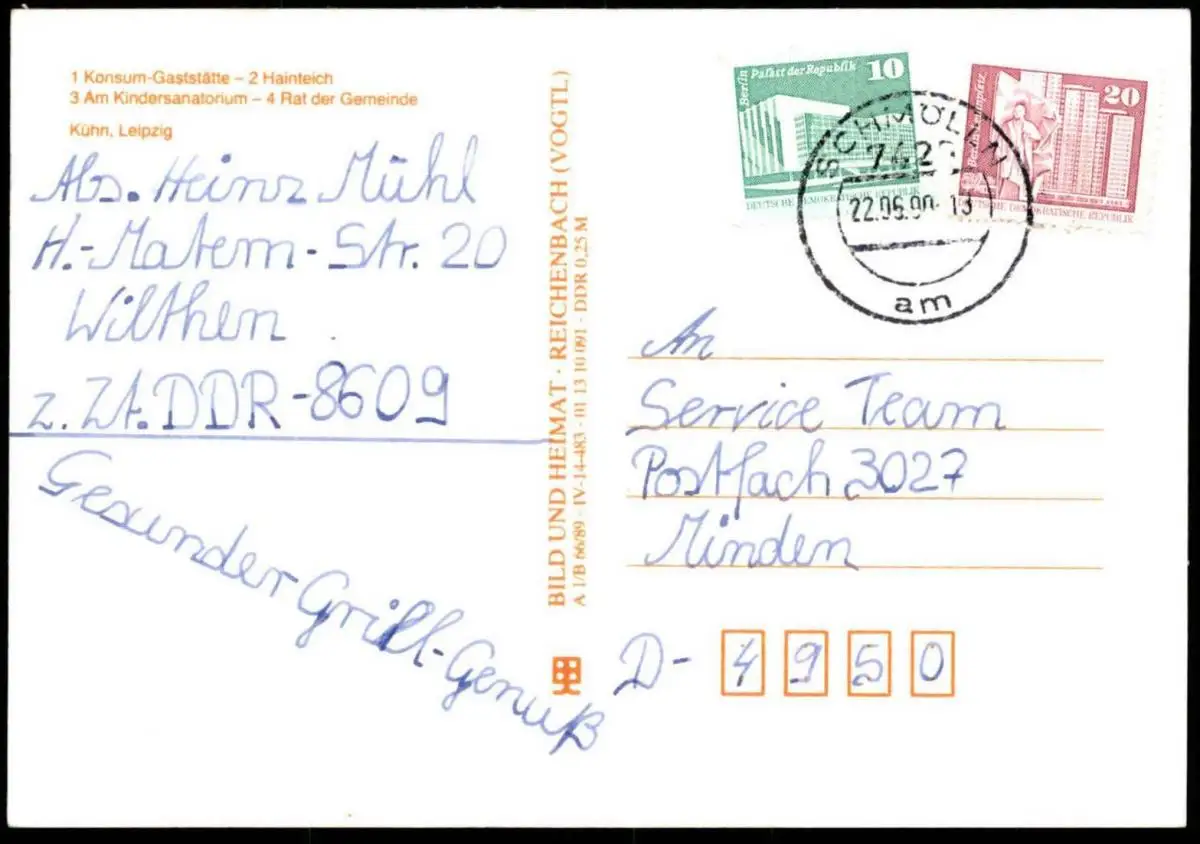 1 Konsum-Gaststätte – 2 Hainteich
3 Am Kindersanatorium – 4 Rat der Gemeinde
Kühn, Leipzig
Abs. Heinz Mühl
H.-Matern-Str. 20
Wilthen
z. Zt. DDR-8609
Gesunder Grill-Genuß
BILD UND HEIMAT · REICHENBACH (VOGTL)
A 1/B 66/89 · IV-14-483 · 01 13 10 091 · DDR 0,25 M
Berlin Palast der Republik 10
DEUTSCHE DEMOKRATISCHE REPUBLIK
20
Berlin
DEUTSCHE DEMOKRATISCHE REPUBLIK
SCHMÖLLN
22.06.90-13
am
An
Service Team
Postfach 3027
Minden
D- 4950